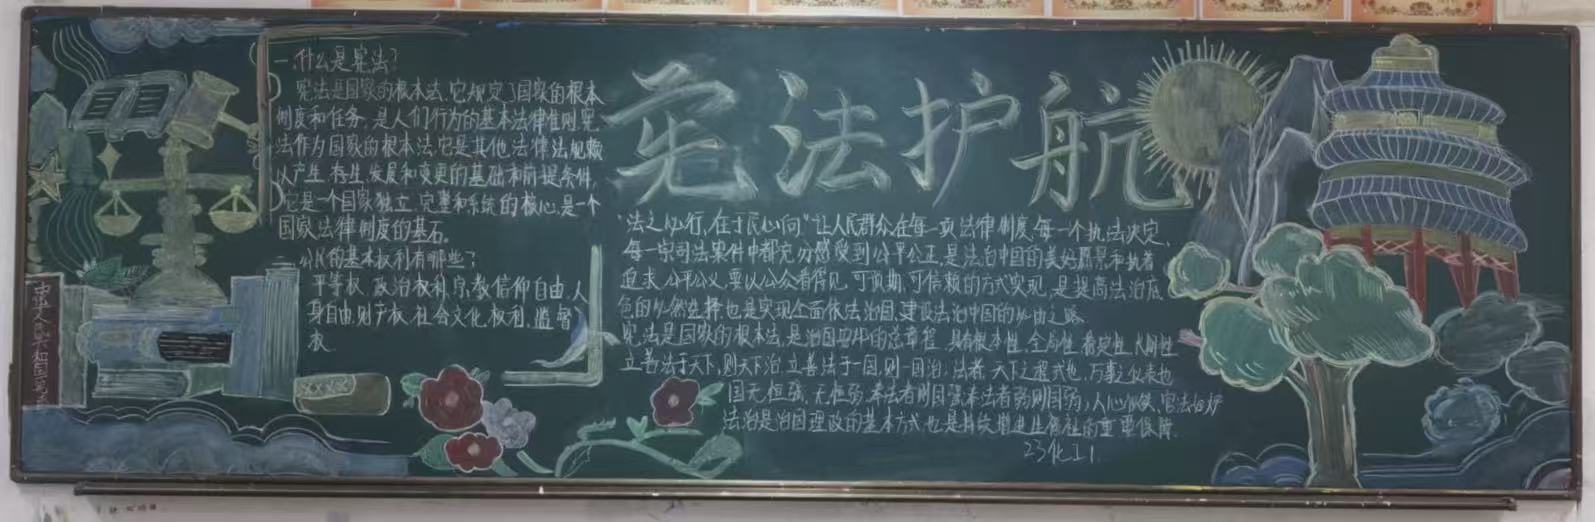 一.什么是宪法?
宪法是国家的根本法,它规定了国家的根本
制度和任务,是人们行为的基本法律准则.宪
法作为国家的根本法,它是其他法律法规赖
以产生.存在.发展和变更的基础和前提条件,
它是一个国家独立.完整和系统的核心,是一个
国家法律制度的基石。
二.公民的基本权利有哪些?
平等权.政治权利.宗教信仰自由.人
身自由.财产权.社会文化权利.监督
权.
宪法护航
"法之必行,在于民心所向"让人民群众在每一项法律制度,每一个执法决定,
每一宗司法案件中都充分感受到公平公正,是法治中国的美好愿景和执着
追求.公平公义,要以公众看得见,可预期,可信赖的方式实现,是提高法治底
色的必然选择,也是实现全面依法治国,建设法治中国的必由之路.
宪法是国家的根本法,是治国安邦的总章程,具有根本性,全局性,稳定性,长期性
立善法于天下,则天下治,立善法于一国,则一国治,法者,天下之程式也,万事之仪表也
国无恒强,无恒弱,奉法者强则国强,奉法者弱则国弱,人心
法治是治国理政的基本方式,也是持续增进民生福祉的重要保障.
23化工1.
中华人民共和国宪法